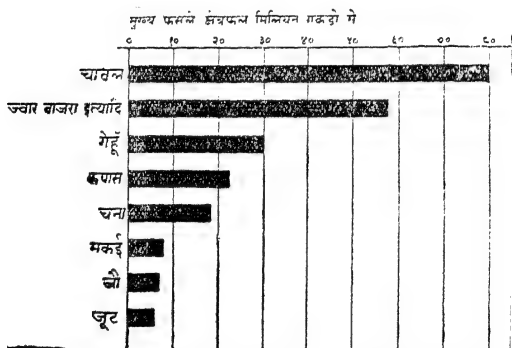 मुख्य फसलें क्षेत्रफल मिलियन एकडो मे
0 10 20 30 ४0 ५0 ६0 ७0 ८0
चावल
ज्वार बाजरा इत्यादि
गेहूँ
कपास
चना
मकई
जौ
जूट